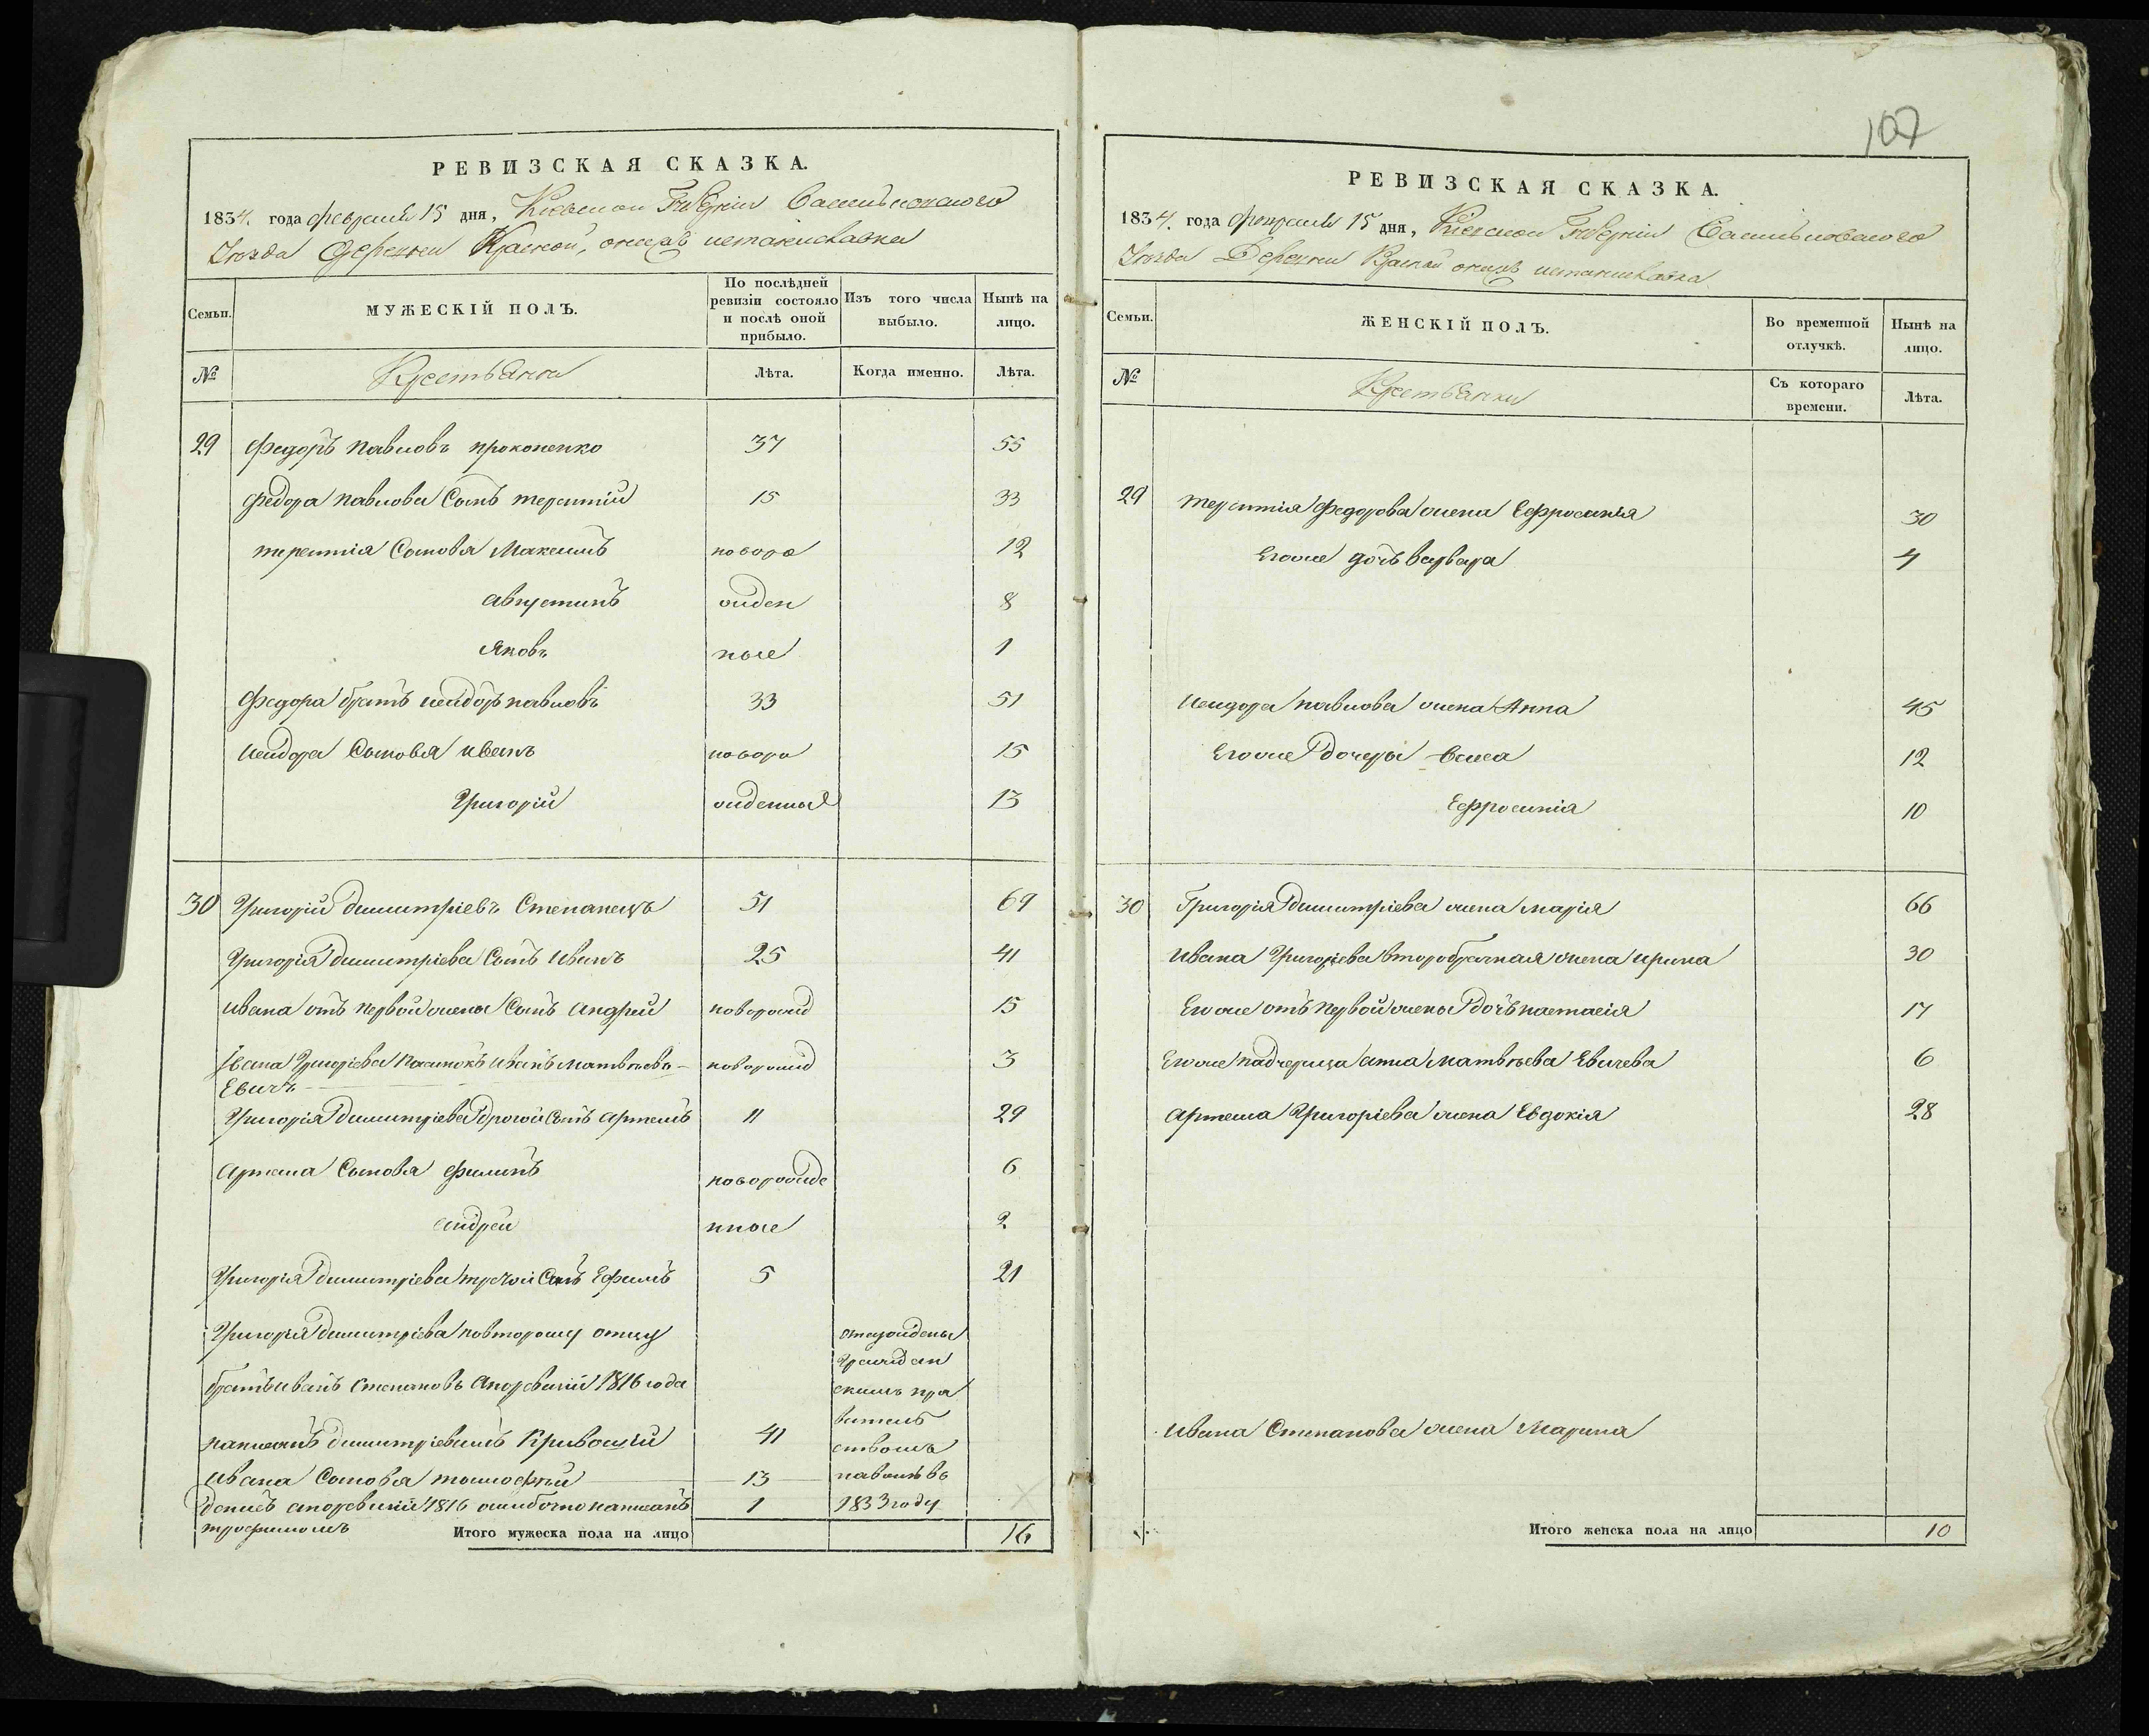 107
РЕВИЗСКАЯ СКАЗКА.
1834. года февраля 15 дня, Кіевской Губерніи Васильковскаго
Уезда Деревни Красной, он
Семьи. МУЖЕСКІЙ ПОЛЪ. По послѣдней ревизіи состояло и послѣ оной прибыло. Изъ того числа выбыло. Нынѣ на лицо.
№ Крестьяне Лѣта. Когда именно. Лѣта.
29 Федоръ павловъ прокопенко 37 55
Федора павлова Сынъ терентій 15 33
терентія Сыновья Максимъ новоро 12
августинъ жден 8
Яковъ ные 1
Федора братъ исидоръ павловъ 33 51
исидора Сыновья иванъ новоро 15
Григорій жденныя 13
30 Григорій димитріевъ Степанецъ 51 69
Григорія димитріева Сынъ иванъ 25 41
ивана отъ первой жены Сынъ андрей новорожд 15
Ивана Григоріева пасинокъ иванъ матвѣевъ новорожд 3
Евичъ
Григорія димитріева другой Сынъ артемъ 11 29
артема Сыновья филипъ новорожде 6
андрей нные 2
Григорія димитріева третой Сынъ Ефимъ 5 21
Григорія димитріева повторому отцу отсуждены
граждан
братъ иванъ степановъ 1816 года скимъ пра
витель
написанъ димитріевымъ Кривошій 41 ствомъ
ивана Сыновья тимофей 13
денисъ 1816 ошибочно написанъ 1 1833 году
трофимомъ Итого мужеска пола на лицо 16
РЕВИЗСКАЯ СКАЗКА.
1834. года февраля 15 дня, Кіевской Губерніи Васильковскаго
Уезда Деревни Красной
Семьи. ЖЕНСКІЙ ПОЛЪ. Во временной отлучкѣ. Нынѣ на лицо.
№ Крестьянки Съ котораго времени. Лѣта.
29 терентія федорова жена Ефросинія 30
Егоже дочь варвара 4
исидора павлова жена Анна 45
Егоже дочери 12
Ефросинія 10
30 Григорія димитріева жена марія 66
ивана Григоріева второбрачная жена ирина 30
Егоже отъ первой жены дочь настасія 17
Егоже падчерица анна матвѣева Евичева 6
артема Григоріева жена Евдокія 28
ивана Степанова жена Марина
Итого женска пола на лицо 10